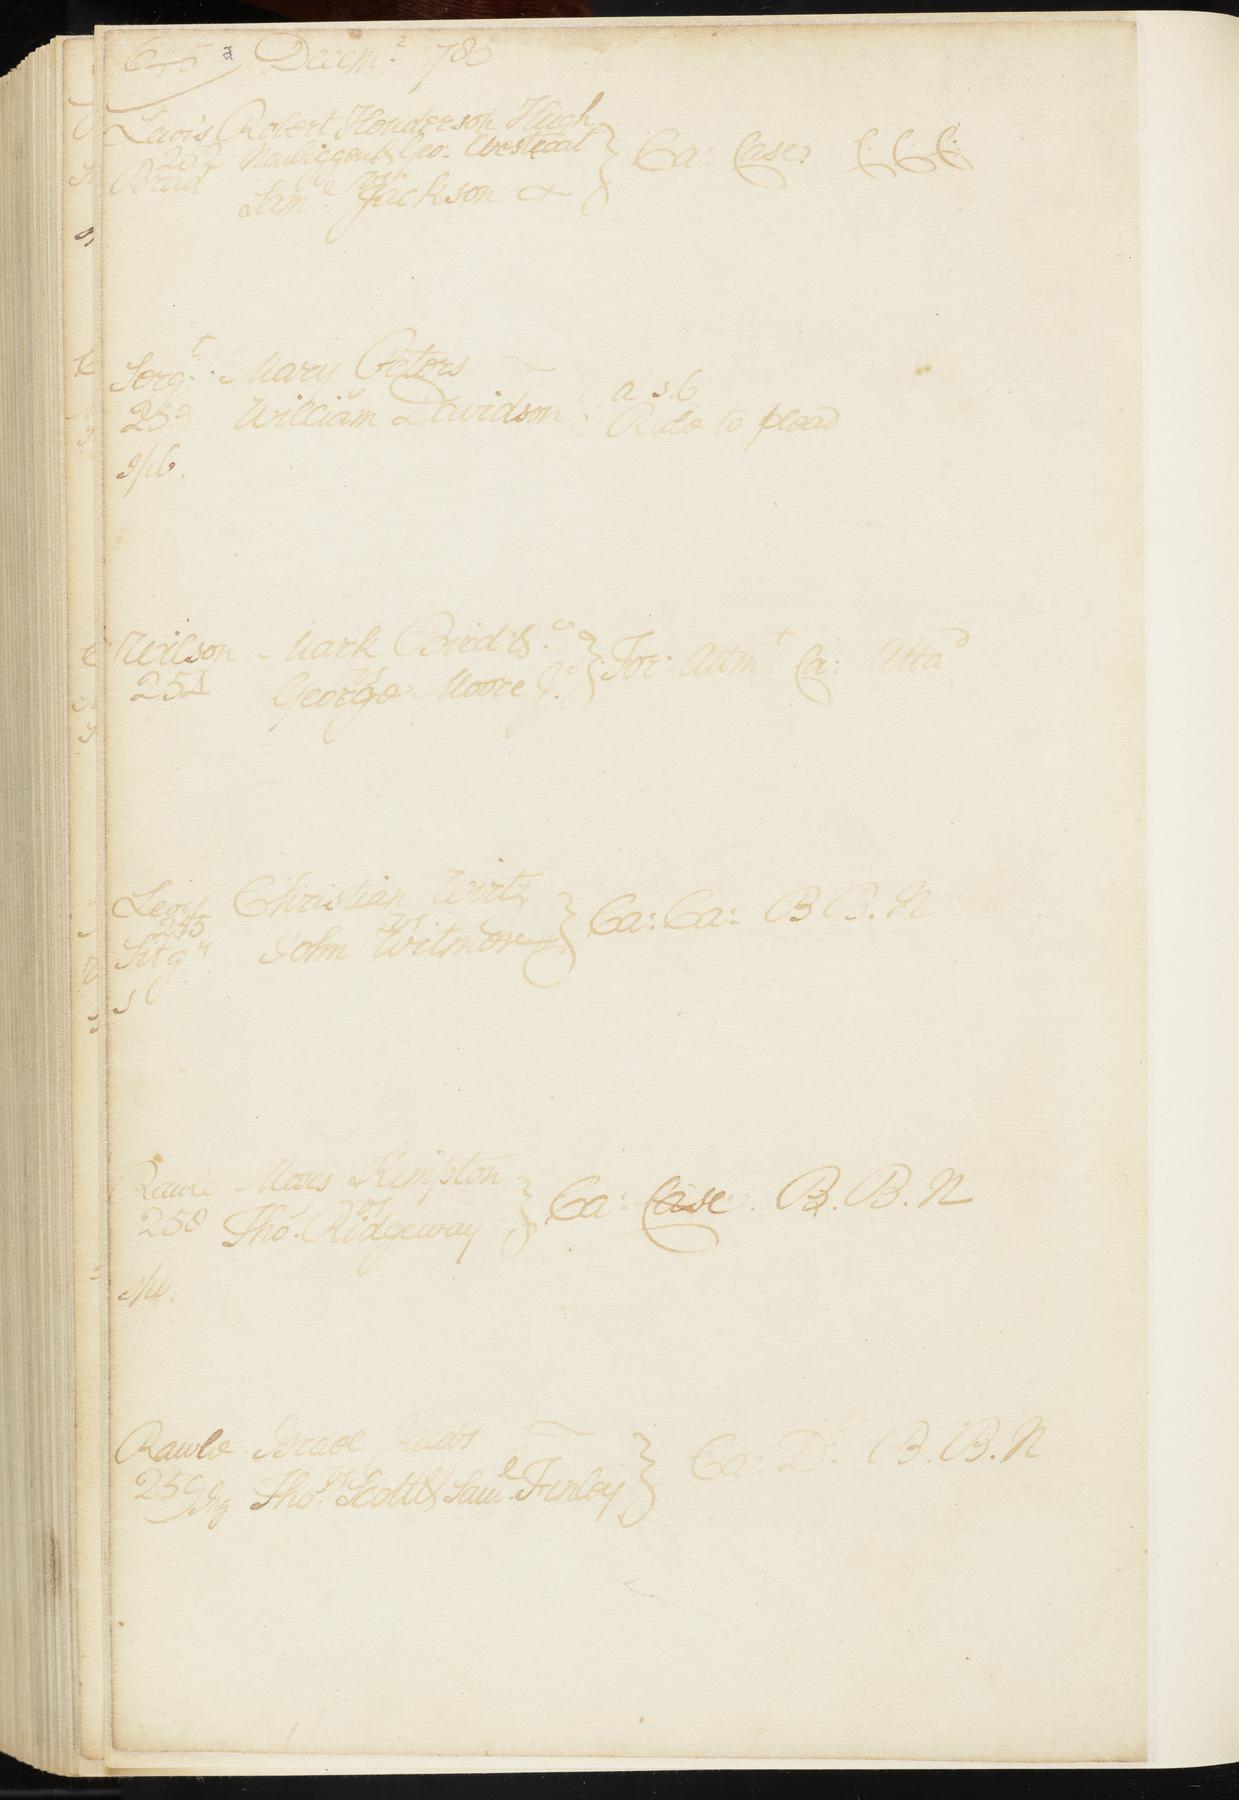 645 a Decem.r 1785
Lewis Robert Henderson Hugh
252 Newbiggen & Geo: Westcoat } Ca: Case. C.C.C.
Brad vs
Sam.l Jackson +
Serg.t Mary Peters
253 William Davidson a s. 6
Rule to plead
s/16.
Wilson Mark Bird & C.o
254 vs George Moore J.r } For: Attm.t Ca: Atta.d
Levy Christian Wirtz
245 vs } Ca: Ca: B B. N
Sitg.s John Witmore
s
Rawle Moses Kempton
258 vs Tho.s Ridgeway } Ca: Case. B. B. N
s/16.
Rawle Israel Jacobs
259 vs Tho.s Scott & Sam.l Finley } Ca: D.o B. B. N